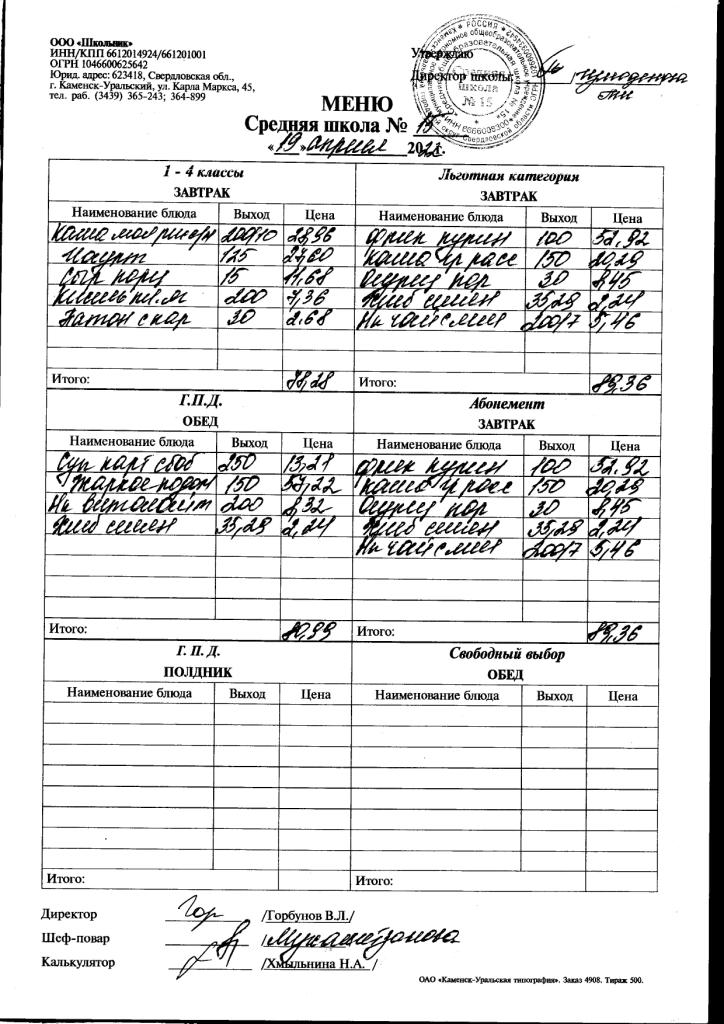 ООО «Школьник»
ИНН/КПП 6612014924/661201001
ОГРН 1046600625642
Юрид. адрес: 623418, Свердловская обл.,
г. Каменск-Уральский, ул. Карла Маркса, 45,
тел. раб. (3439) 365-243; 364-899
Утверждаю
Директор школы:
Средняя
школа
№ 15
МЕНЮ
Средняя школа № 15
«19» апреля 202 г.
1 - 4 классы
ЗАВТРАК
Наименование блюда Выход Цена
Каша мол 200/10 28,96
Йогурт 125 27,60
Сыр порц 15 11,68
Кисель пл.яг 200 7,36
Батон с нар 30 2,68
Итого: 78,28
Льготная категория
ЗАВТРАК
Наименование блюда Выход Цена
Фрик курин 100 52,92
Каша гр расс 150 20,29
Огурец пор 30 8,45
Хлеб пшен 35,29 2,24
Нк чай слим 200/7 5,46
Итого: 89,36
Г.П.Д.
ОБЕД
Наименование блюда Выход Цена
Суп карт с боб 250 13,21
Жаркое по дом 150 57,22
Нк витошайт 200 8,32
Хлеб пшен 35,29 2,24
Итого: 80,99
Абонемент
ЗАВТРАК
Наименование блюда Выход Цена
Фрик курин 100 52,92
Каша гр расс 150 20,29
Огурец пор 30 8,45
Хлеб пшен 35,29 2,24
Нк чай слим 200/7 5,46
Итого: 89,36
Г. П. Д.
ПОЛДНИК
Наименование блюда Выход Цена
Итого:
Свободный выбор
ОБЕД
Наименование блюда Выход Цена
Итого:
Директор Гор /Горбунов В.Л./
Шеф-повар / Мухаметзанова
Калькулятор /Хмыльнина Н.А. /
ОАО «Каменск-Уральская типография». Заказ 4908. Тираж 500.